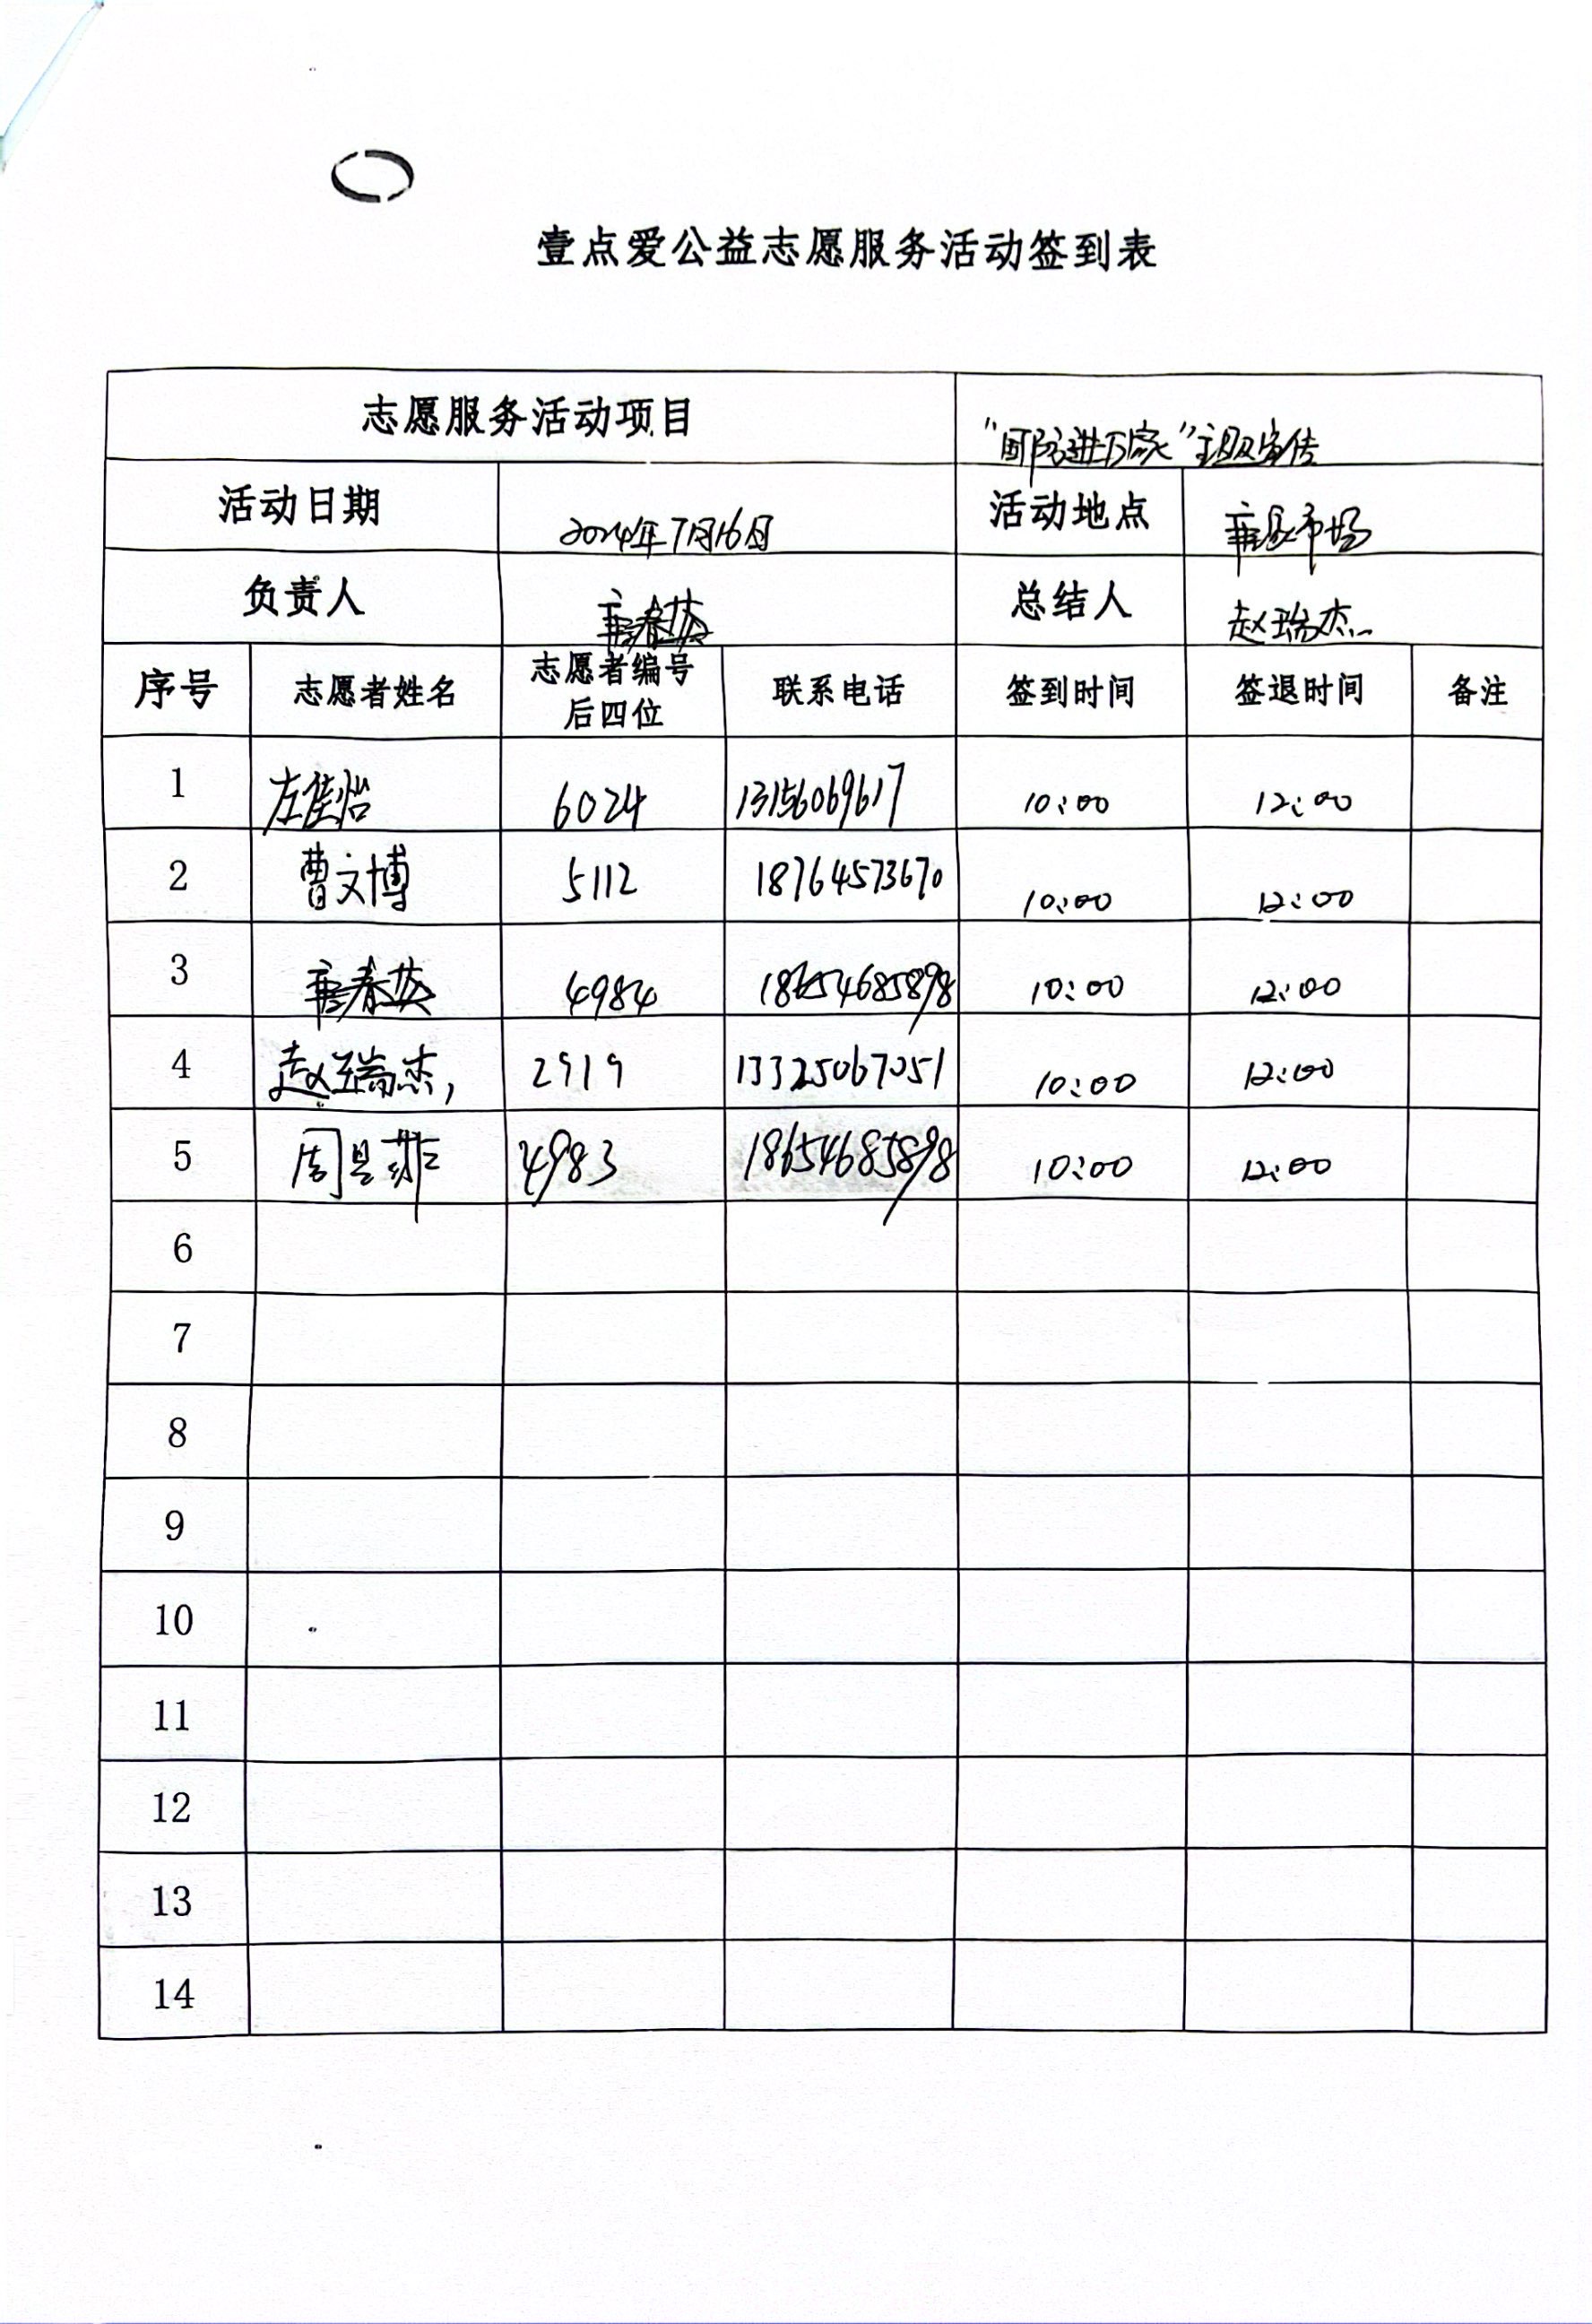 壹点爱公益志愿服务活动签到表
志愿服务活动项目 “国防进万家”主题宣传
活动日期 2024年7月16日 活动地点 市场
负责人 唐春英 总结人 赵瑞杰
序号 志愿者姓名 志愿者编号后四位 联系电话 签到时间 签退时间 备注
1 左佳怡 6024 13156069617 10:00 12:00
2 曹文博 5112 18764573670 10:00 12:00
3 唐春英 4984 18654685898 10:00 12:00
4 赵瑞杰, 2919 13325067051 10:00 12:00
5 周 4983 18654685898 10:00 12:00
6
7
8
9
10
11
12
13
14